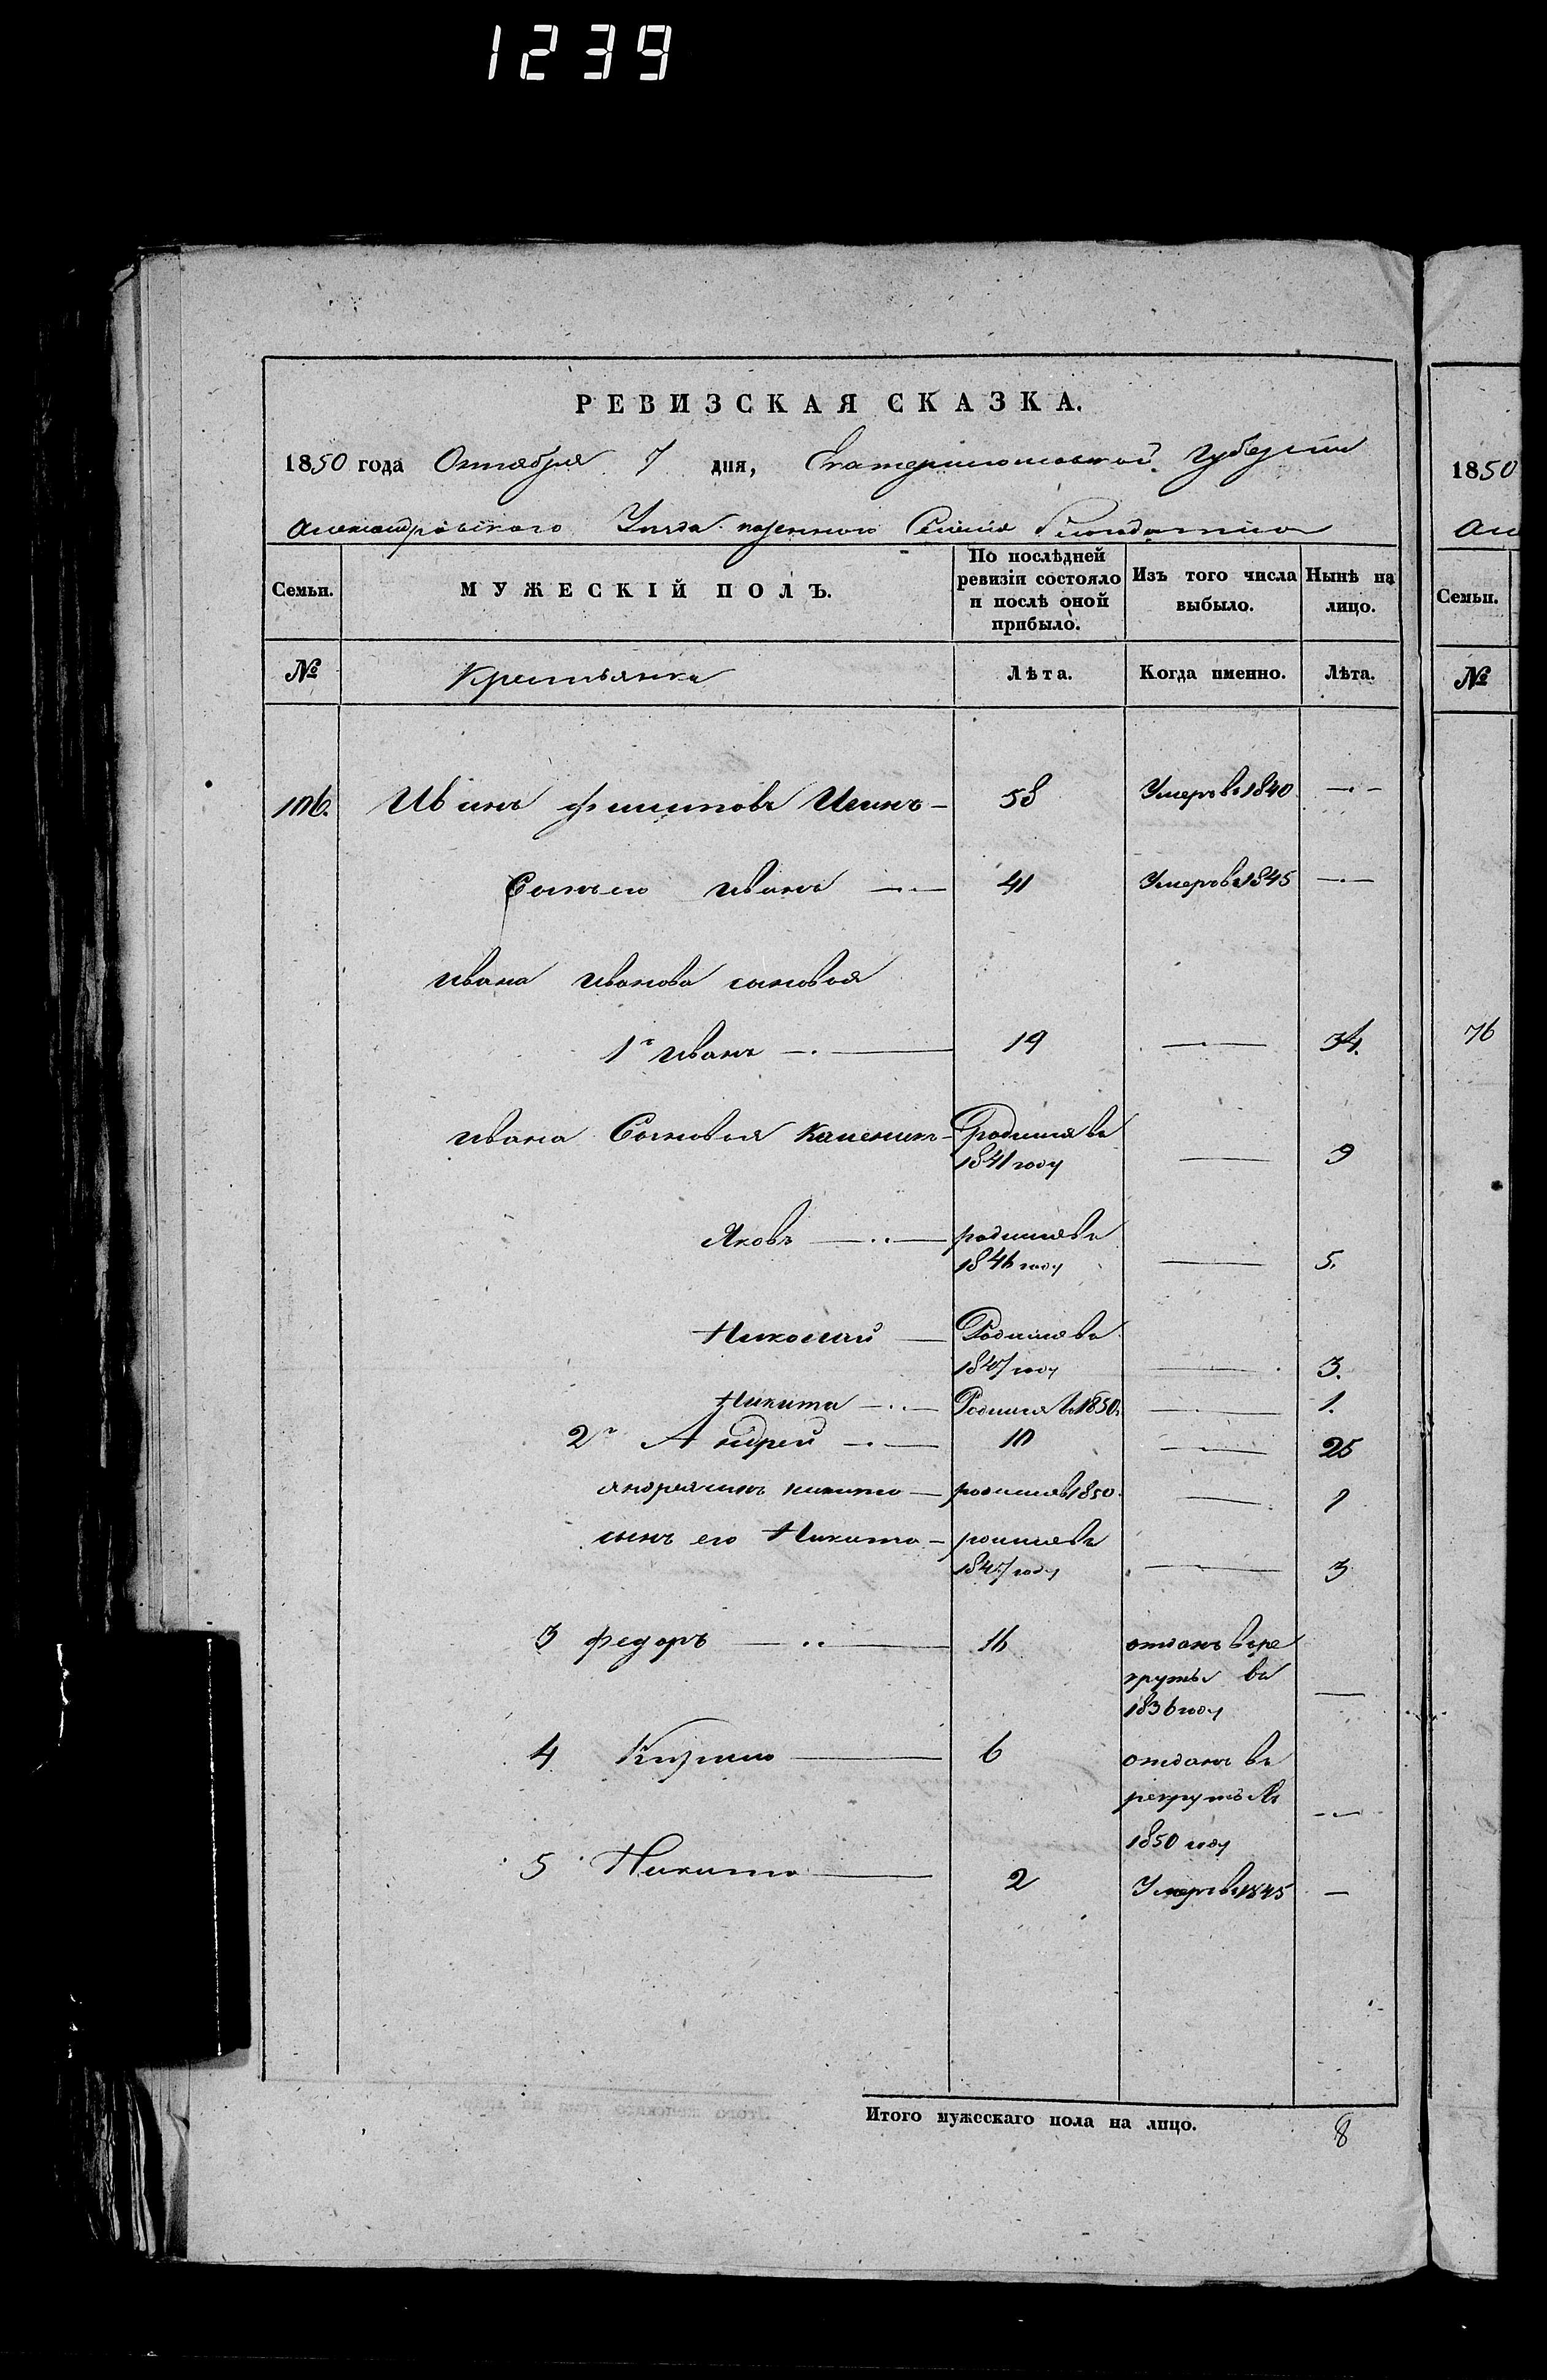 1239
РЕВИЗСКАЯ СКАЗКА.
1850 года Октября 7 дня, Екатеринославской Губернiи
Александровского Уезда казенного Селенiя
Семьи.
МУЖЕСКIЙ ПОЛЪ.
По послѣдней ревизiи состояло и послѣ оной прибыло.
Изъ того числа выбыло.
Нынѣ на лицо.
№
Крестьянъ
Лѣта.
Когда именно.
Лѣта.
106. Иванъ Филиповъ — 58 Умеръ въ 1840 —
Сынъ его Иванъ — 41 Умеръ въ 1845 —
Ивана Иванова сыновья
1й Иванъ — 19 — 34.
Ивана Сыновья — Родился въ
1841 году — 9
Яковъ — родился въ
1846 году — 5.
Николай — Родился въ
1847 году — 3.
Никита — Родился въ 1850. — 1.
2й Андрей — 10 — 25
Андрея сынъ Никита — родился в 1850. — 1
сынъ его Никита — родился въ
1847 году — 3
3 Федоръ — 16 отданъ въ ре
круты въ
1836 году —
4 Кузма — 6 отданъ въ
рекруты въ
1850 году —
5 Никита — 2 Умеръ въ 1845 —
Итого мужескаго пола на лицо. 8
1850
Семьи.
№
76